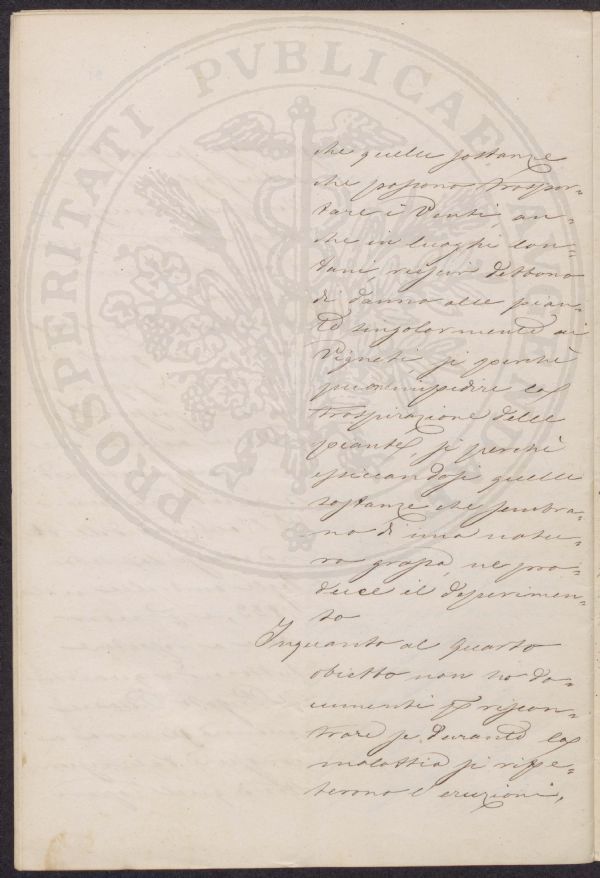 PROSPERITATI PVBLICAE AVGENDAE
che quelle sostanze
che possono traspor=
tare i Venti, an=
che in luoghi lon=
tani, riescir debbono
di danno alle pian=
te singolarmente ai
Vigneti, si perchè
impedire la
traspirazione delle
piante, si perchè
essiccandosi quelle
sostanze che sembra=
no di una natu=
ra grassa, ne pro=
duce il deperimen=
to
Inquanto al quarto
obietto non ho do=
cumenti p riscon=
trare se durante la
malattia si ripe=
terono l'eruzioni,